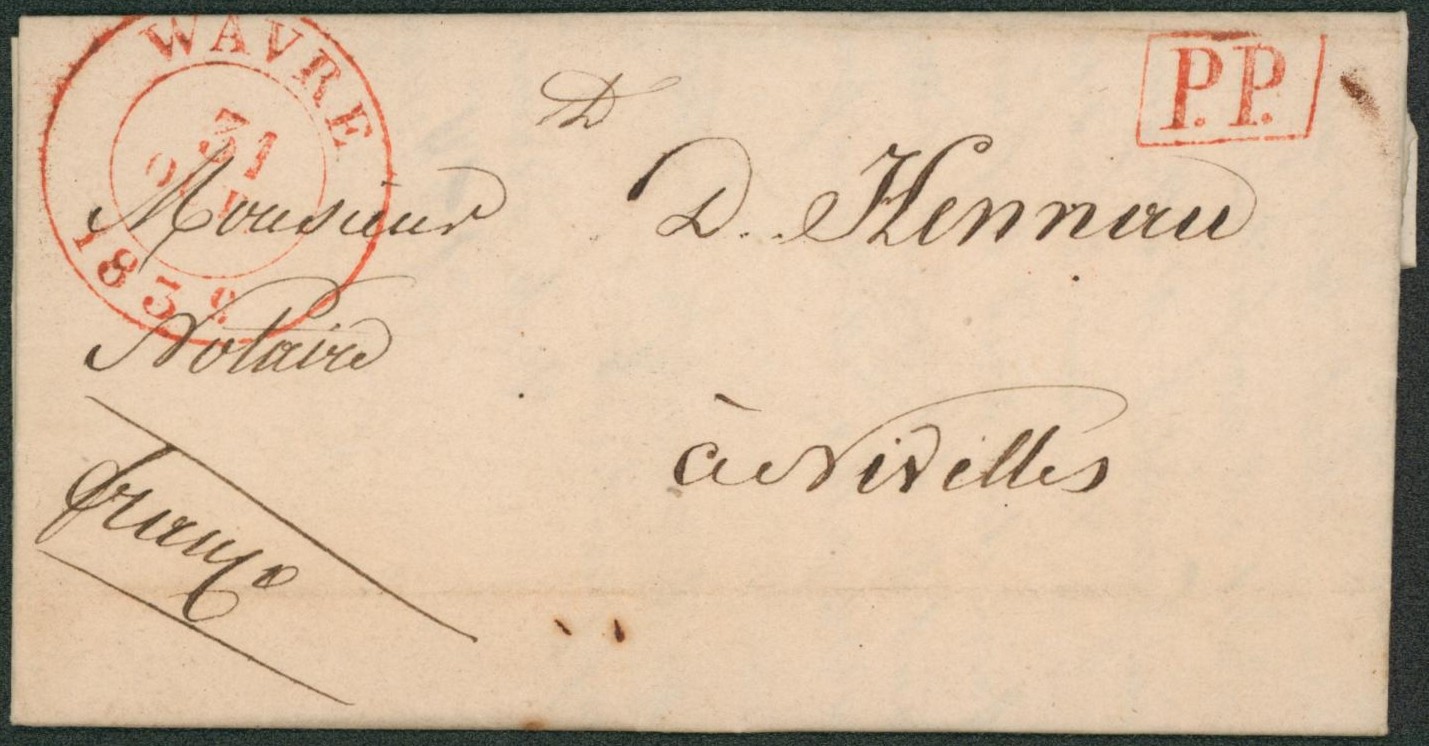 WAVRE
31
183
P.P.
Monsieur D. Hennau
Notaire
à Nivelles
franco